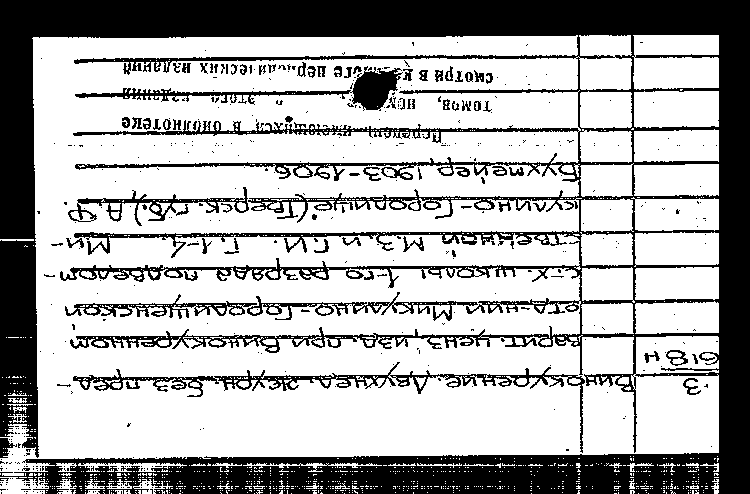 З
618н
Винокурение. Двухнед. журн. без пред-
варит. ценз., изд. при винокуренном
отд-нии Микулино-Городищенской
с.-х. школы 1-го разряда подведом-
ственной М.З. и Г.И. Г. 1-4. Ми-
кулино-Городище (Тверск. губ.), А.Ф.
Бухмейер, 1903-1906.
Перечень имеющихся в библиотеке
томов, этого издания
смотри в периодических изданий